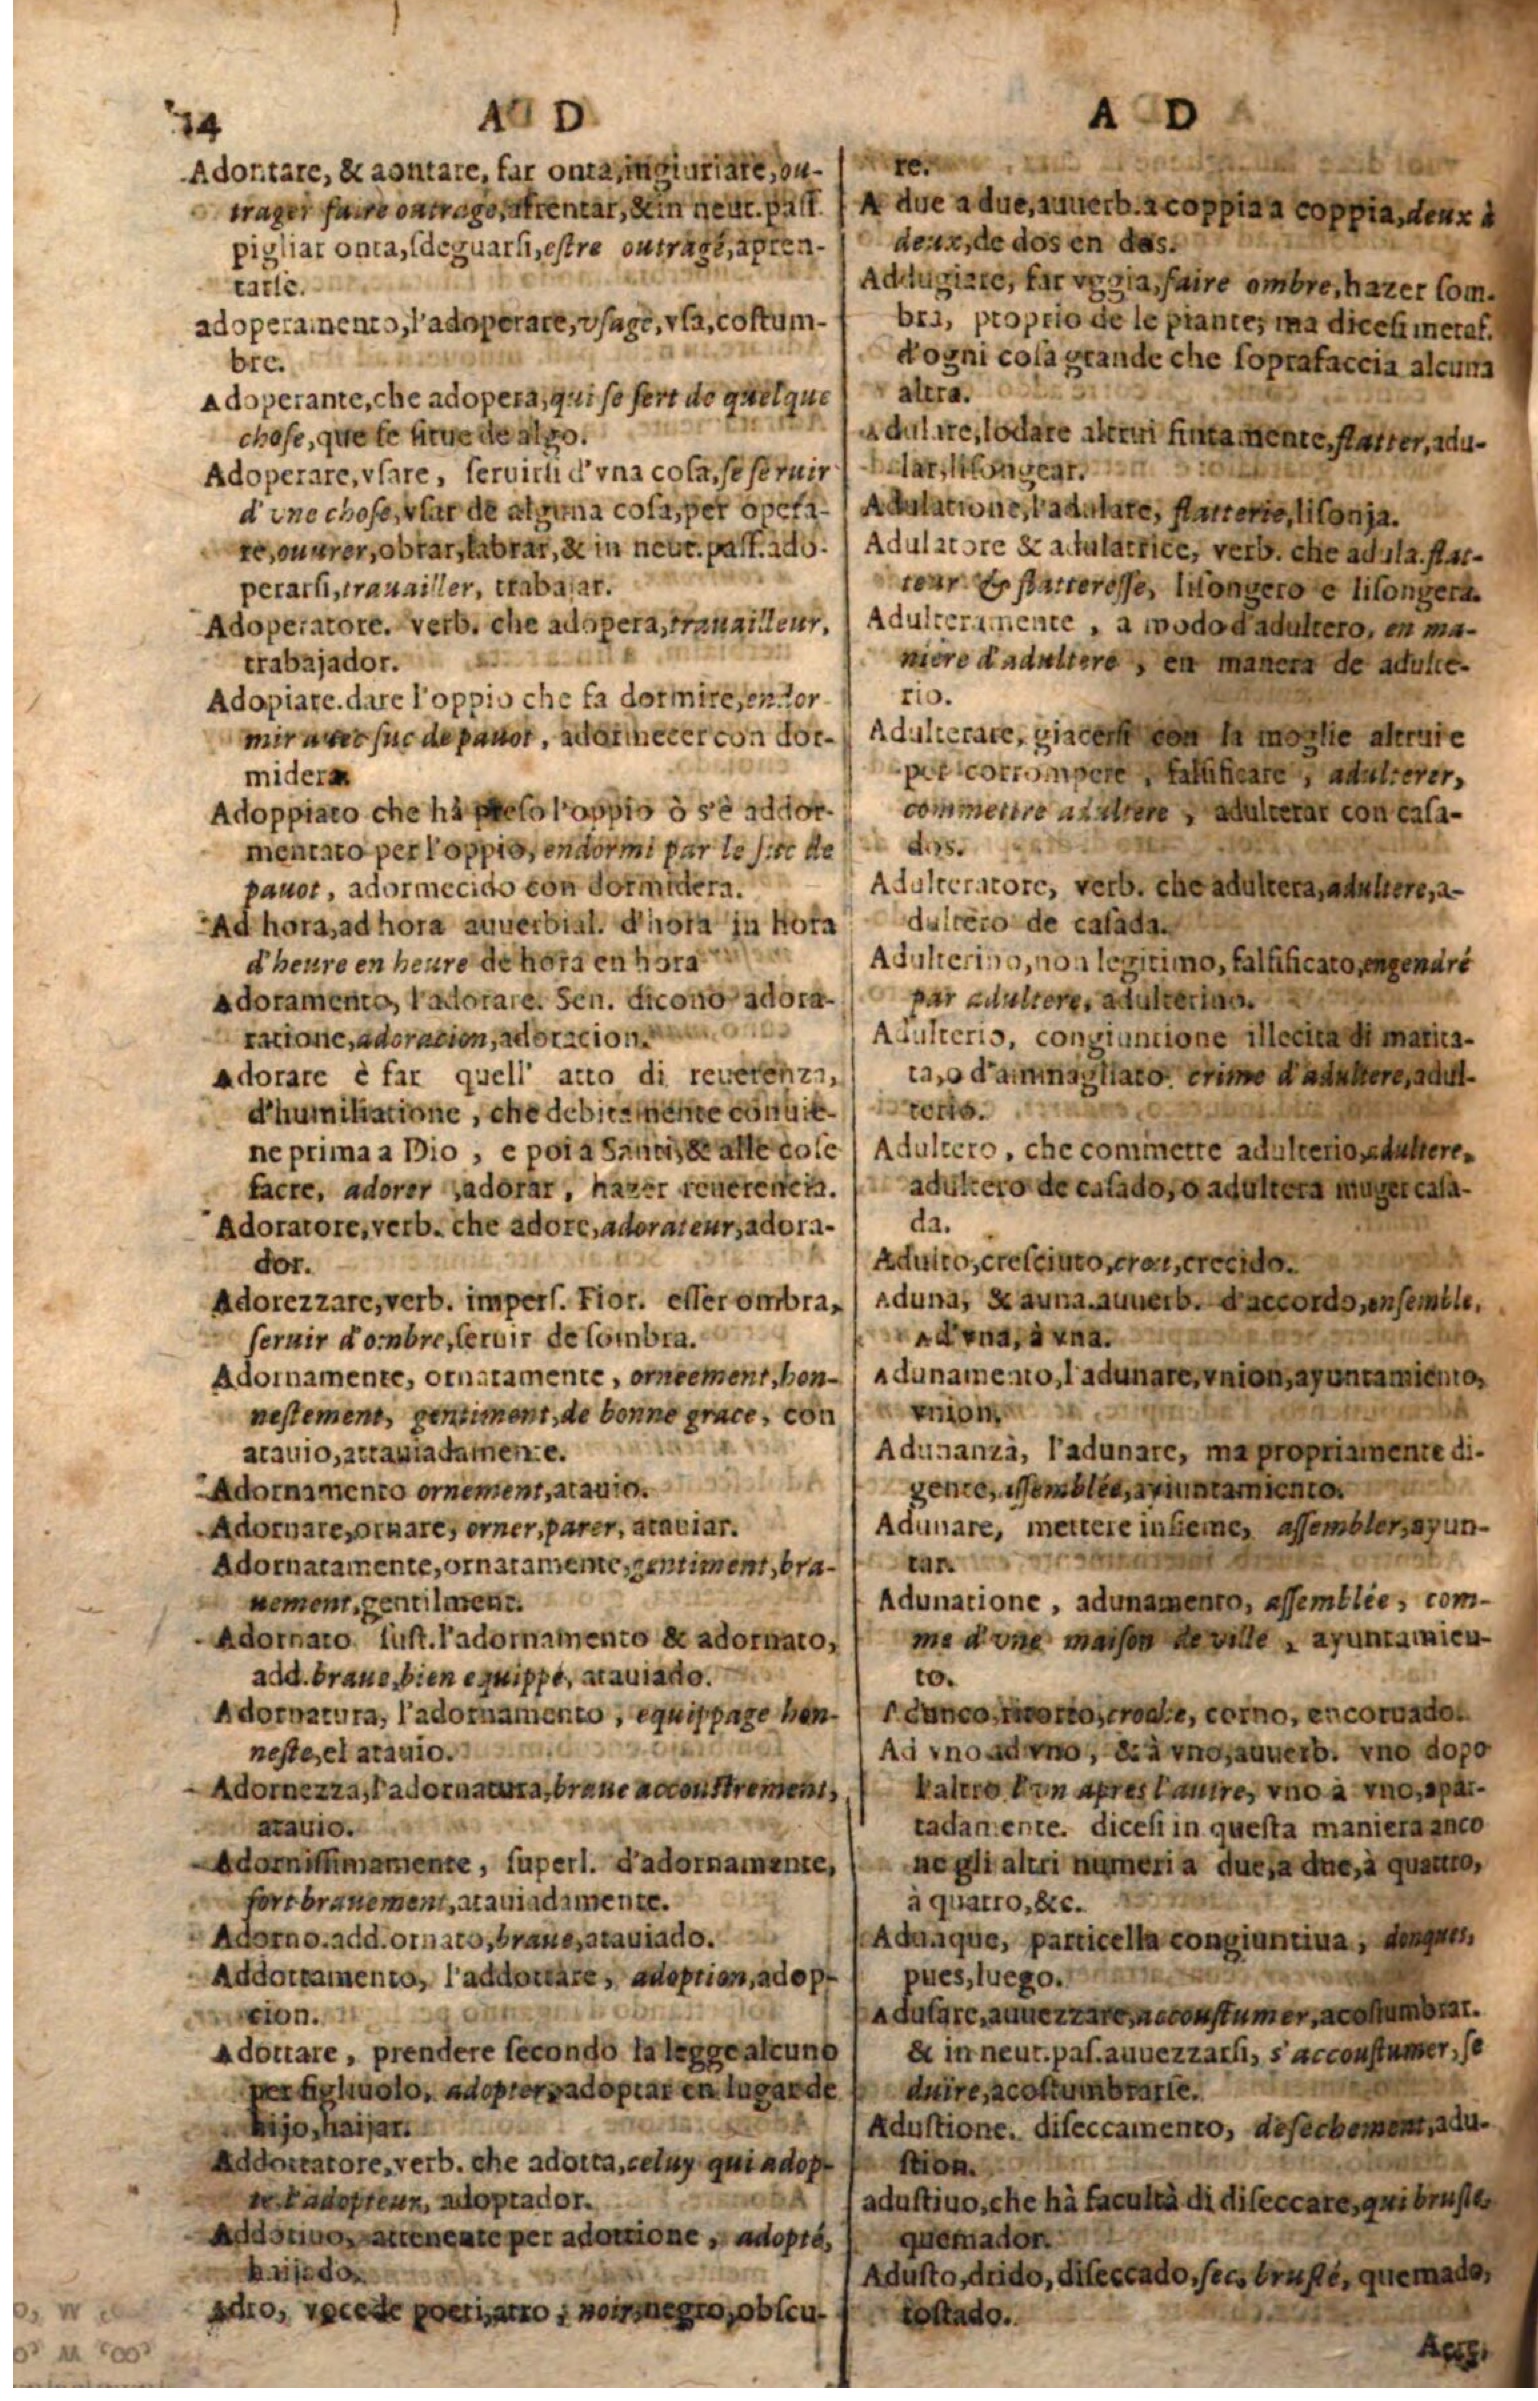 14
A D
Adontare, & aontare, far onta, ingiuriare, ou-
trager faire outrage, afrentar, & in neut. paſſ.
pigliar onta, ſdeguarſi, eſtre outragé, apren-
tarſe.
adoperamento, l'adoperare, vſage, vſa, coſtum-
bre.
Adoperante, che adopera, qui ſe ſert de quelque
choſe, que ſe ſirue de algo.
Adoperare, vſare, ſeruirſi d'vna coſa, ſe ſeruir
d'vne choſe, vſar de alguna coſa, per opera-
re, ouurer, obrar, labrar, & in neut. paſſ. ado-
perarſi, trauailler, trabajar.
Adoperatore. verb. che adopera, trauailleur,
trabajador.
Adopiare. dare l'oppio che fa dormire, endor-
mir auec ſuc de pauot, adormecer con dor-
midera
Adoppiato che hà preſo l'oppio ò s'è addor-
mentato per l'oppio, endormi par le ſuc de
pauot, adormecido con dormidera.
Ad hora, ad hora auuerbial. d'hora in hora
d'heure en heure de hora en hora
Adoramento, l'adorare. Sen. dicono adora-
ratione, adoracion, adoracion.
Adorare è far quell' atto di reuerenza,
d'humiliatione, che debitamente conuie-
ne prima a Dio, e poi a Santi, & alle coſe
ſacre, adorer, adorar, hazer reuerencia.
Adoratore, verb. che adore, adorateur, adora-
dor.
Adorezzare, verb. imperſ. Fior. eſſer ombra,
ſeruir d'ombre, ſeruir de ſombra.
Adornamente, ornatamente, orneement, hon-
neſtement, gentiment, de bonne grace, con
atauio, attauiadamente.
Adornamento ornement, atauio.
Adornare, ornare, orner, parer, atauiar.
Adornatamente, ornatamente, gentiment, bra-
uement, gentilment.
Adornato ſuſt. l'adornamento & adornato,
add. braue, bien equippé, atauiado.
Adornatura, l'adornamento, equippage hon-
neſte, el atauio.
Adornezza, l'adornatura, braue accouſtrement,
atauio.
Adorniſſimamente, ſuperl. d'adornamente,
fort brauement, atauiadamente.
Adorno. add. ornato, braue, atauiado.
Addottamento, l'addottare, adoption, adop-
cion.
Adottare, prendere ſecondo la legge alcuno
per figliuolo, adopter, adoptar en lugar de
hijo, haijar.
Addottatore, verb. che adotta, celuy qui adop-
te. l'adopteur, adoptador.
Addotiuo, attenente per adottione, adopté,
haijado.
Adro, voce de poeti, atro, noir, negro, obſcu-
A D
re.
A due a due, auuerb. a coppia a coppia, deux à
deux, de dos en dos.
Addugiare, far vggia, faire ombre, hazer ſom-
bra, proprio de le piante, ma diceſi metaf.
d'ogni coſa grande che ſoprafaccia alcuna
altra.
Adulare, lodare altrui fintamente, flatter, adu-
lar, liſongear.
Adulatione, l'adulare, flatterie, liſonja.
Adulatore & adulatrice, verb. che adula. flat-
teur & flattereſſe, liſongero e liſongera.
Adulteramente, a modo d'adultero, en ma-
niere d'adultere, en manera de adulte-
rio.
Adulterare, giacerſi con la moglie altrui e
per corrompere, falſificare, adulterer,
commettre adultere, adulterar con caſa-
dos.
Adulteratore, verb. che adultera, adultere, a-
dultero de caſada.
Adulterino, non legitimo, falſificato, engendré
par adultere, adulterino.
Adulterio, congiuntione illecita di marita-
ta, o d'ammogliato. crime d'adultere, adul-
terio.
Adultero, che commette adulterio, adultere,
adultero de caſado, o adultera muger caſa-
da.
Adulto, creſciuto, creu, crecido.
Aduna, & auna. auuerb. d'accordo, enſemble,
Ad'vna, à vna.
Adunamento, l'adunare, vnion, ayuntamiento,
vnion.
Adunanza, l'adunare, ma propriamente di-
gente, aſſemblée, ayiuntamiento.
Adunare, mettere inſieme, aſſembler, ayun-
tar.
Adunatione, adunamento, aſſemblée, com-
me d'vne maiſon de ville, ayuntamieu-
to.
Adunco, ritorto, croche, corno, encoruado.
Ad vno ad vno, & à vno, auuerb. vno dopo
l'altro l'vn apres l'autre, vno à vno, apar-
tadamente. diceſi in queſta maniera anco
ne gli altri numeri a due, a due, à quattro,
à quatro, &c.
Adunque, particella congiuntiua, donques,
pues, luego.
Aduſare, auuezzare, accouſtumer, acoſtumbrar.
& in neut. paſ. auuezzarſi, s'accouſtumer, ſe
duire, acoſtumbrarſe.
Aduſtione. diſeccamento, deſechement, adu-
ſtion.
aduſtiuo, che hà facultà di diſeccare, qui bruſle,
quemador.
Aduſto, àrido, diſeccado, ſec, bruſlé, quemado,
toſtado.